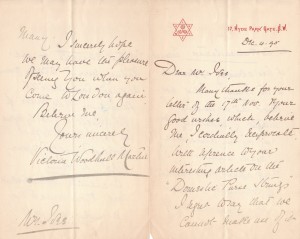 17, Hyde Park Gate, S.W.
Dec. 4. 95
Dear Mr.
Many thanks for your
letter of the 17th Nov. Your
good wishes which, believe
me, I cordially reciprocate
With reference to your
interesting articles on the
"Domestic Purse Strings"
I regret to say that we
cannot make use of
Many. I sincerely hope
we may have the pleasure
of seeing you when you
come to London again
Believe me
Yours sincerely
Victoria Woodhull Martin